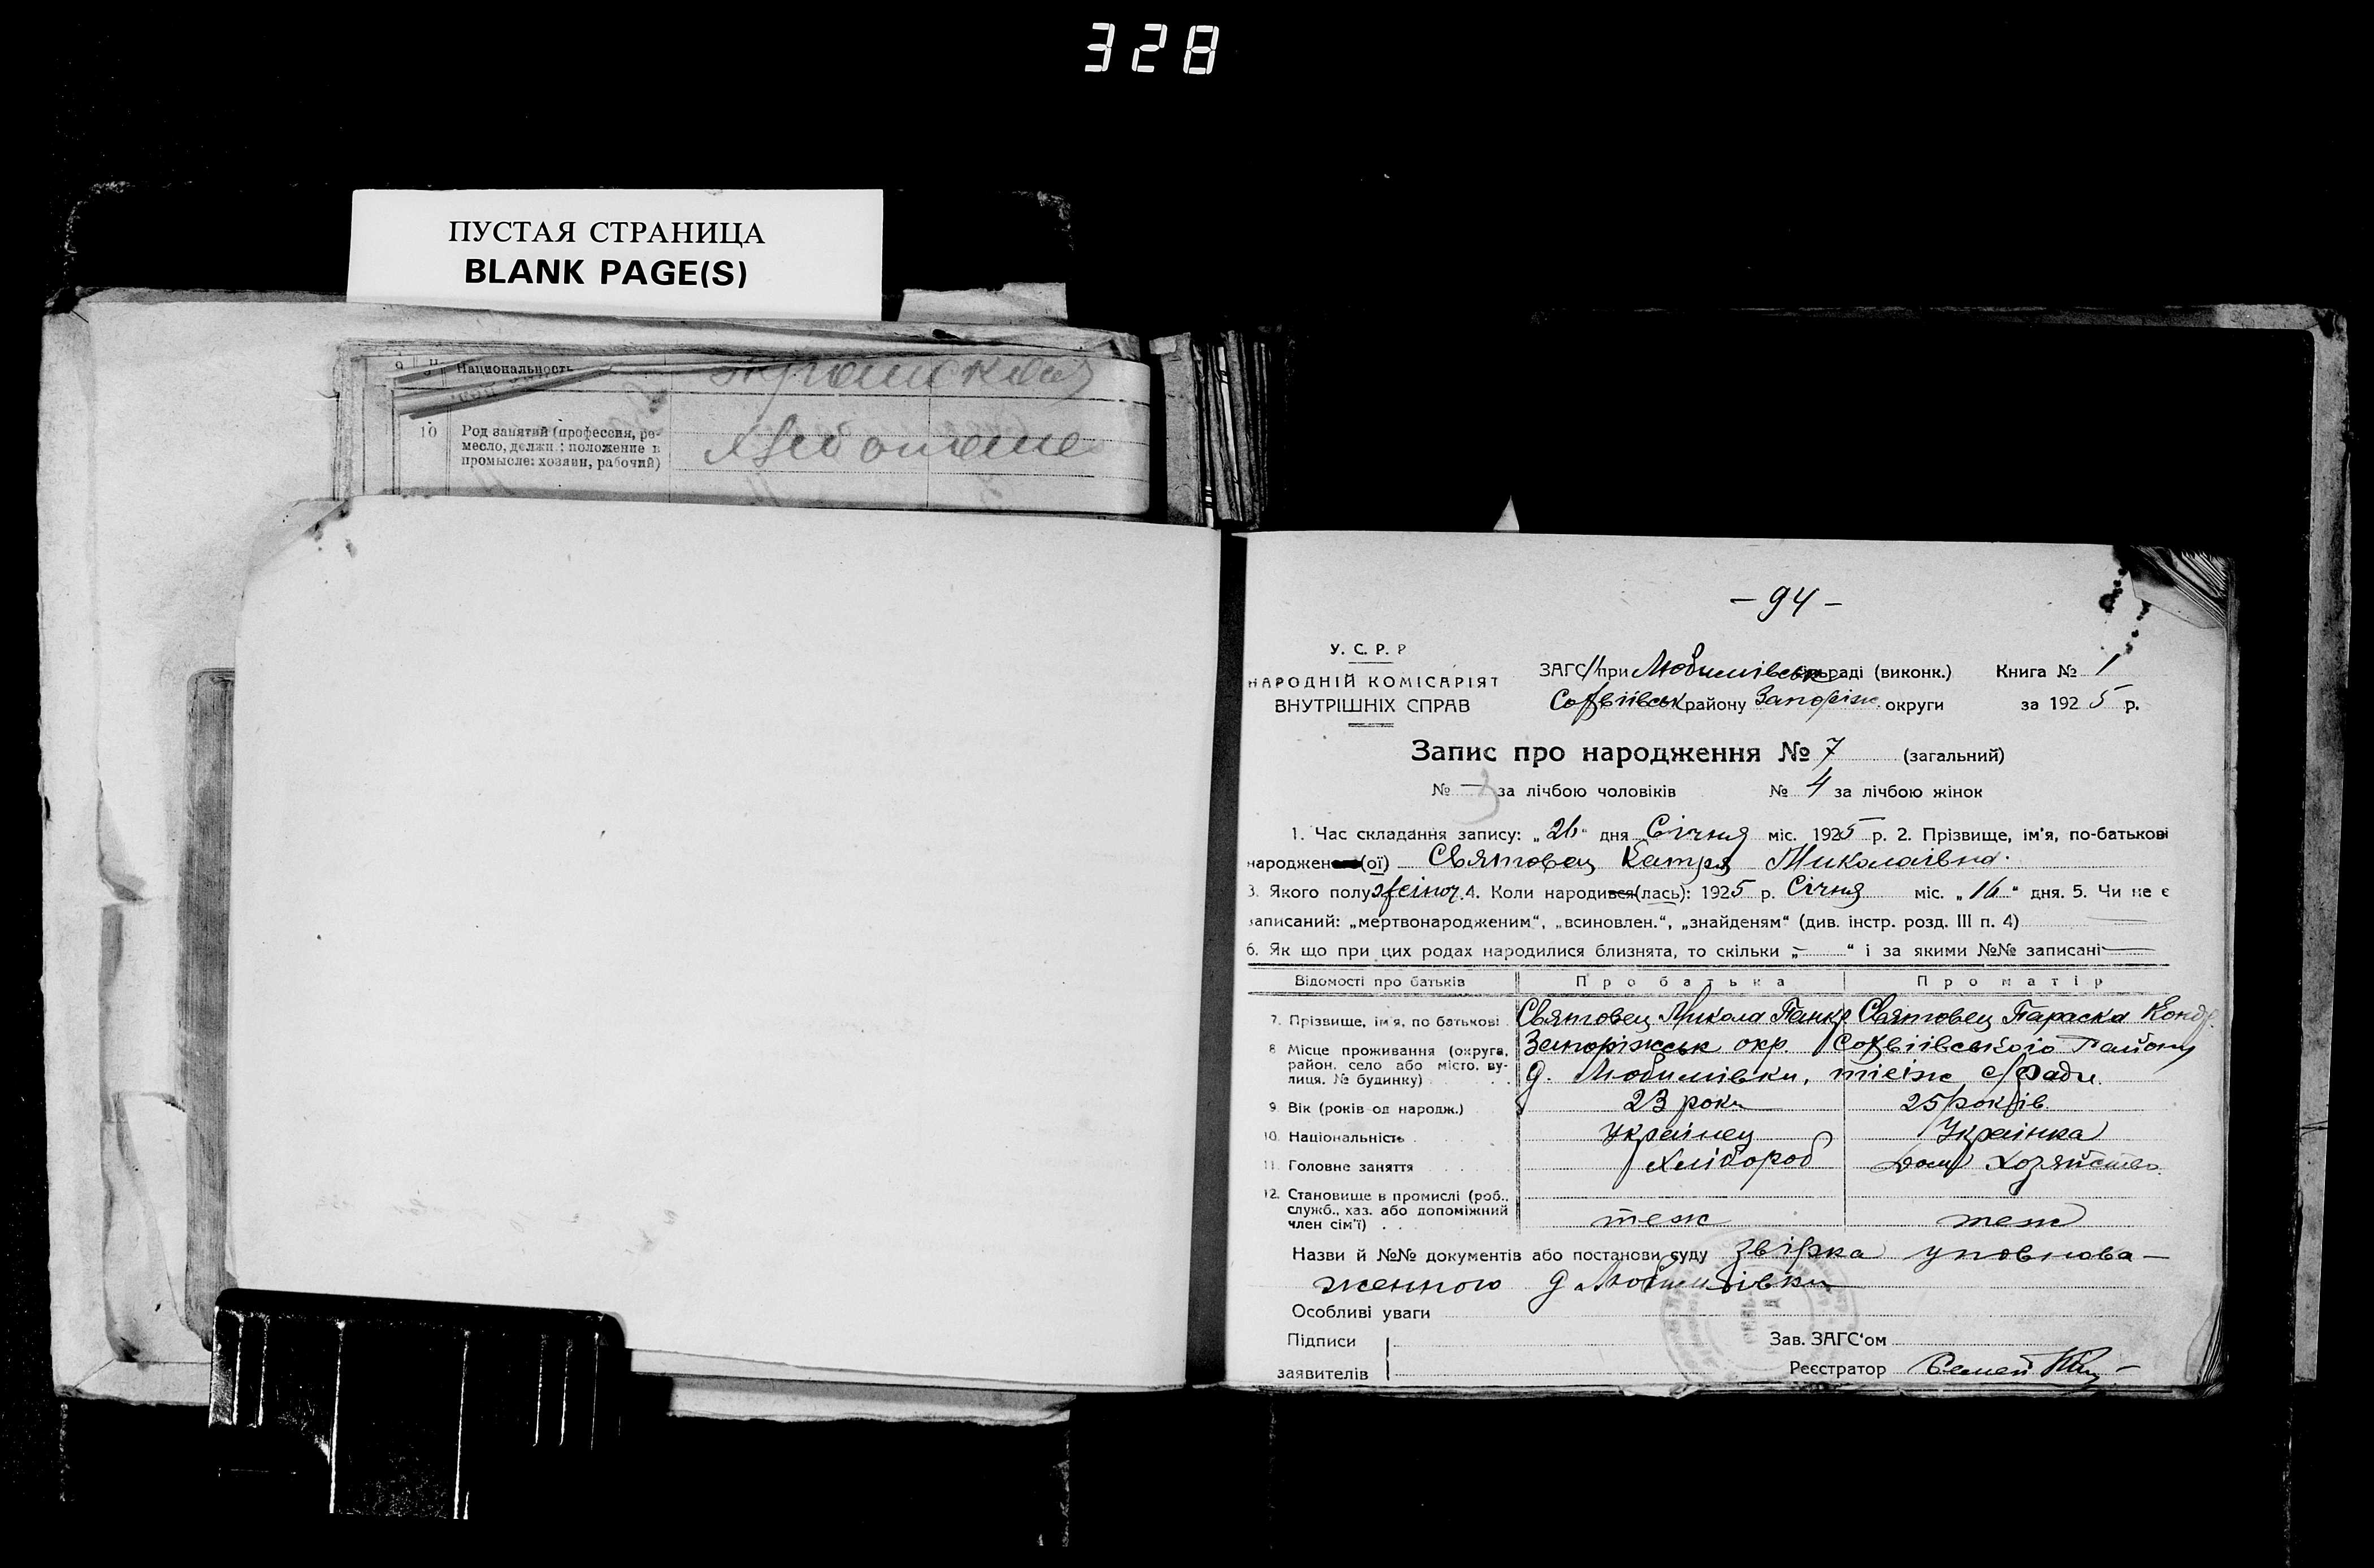 328
ПУСТАЯ СТРАНИЦА
BLANK PAGE(S)
9 Национальность
10 Род занятий (профессия, ре-
месло, должн.; положение в
промысле: хозяин, рабочий)
- 94 -
У. С. Р. Р
НАРОДНІЙ КОМІСАРІЯТ
ВНУТРІШНІХ СПРАВ
ЗАГС при Любимівськ сільраді (виконк.) Книга № 1
Софіївськ району Запоріж. округи за 1925 р.
Запис про народження № 7 (загальний)
№ — за лічбою чоловіків № 4 за лічбою жінок
1. Час складання запису: „26" дня Січня міс. 1925 р. 2. Прізвище, ім'я, по-батькові
народжен (ої) Святовец Катря Миколаівна.
3. Якого полу жіноч. 4. Коли народився(лась): 1925 р. Січня міс. „16" дня. 5. Чи не є
записаний: „мертвонародженим", „всиновлен.", „знайденям" (див. інстр. розд. III п. 4)
6. Як що при цих родах народилися близнята, то скільки „—" і за якими №№ записані —
Відомості про батьків Про батька Про матір
7. Прізвище, ім'я, по батькові Святовец Микола Панкр Святовец Параска Конд.
8 Місце проживання (округа, район, село або місто, ву-лиця, № будинку) Запоріжськ окр. Софіівського Району
д. Любимівки, тіеіж с/Ради.
9. Вік (років од народж.) 23 роки 25 років
10. Національність Украінец Украінка
11. Головне заняття Хлібороб дом Хозяйство
12. Становище в промислі (роб., служб., хаз. або допоміжний член сім'ї) теж теж
Назви й №№ документів або постанови суду Звірка уповнова-
женного д Любимівки
Особливі уваги
Підписи Зав. ЗАГС'ом
заявителів Реєстратор